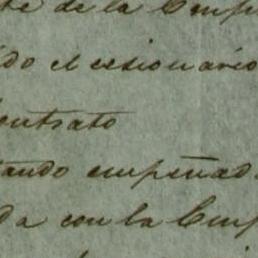 te de la Emp
do el cesionario
contrato
tando empeñad
da con la Emp